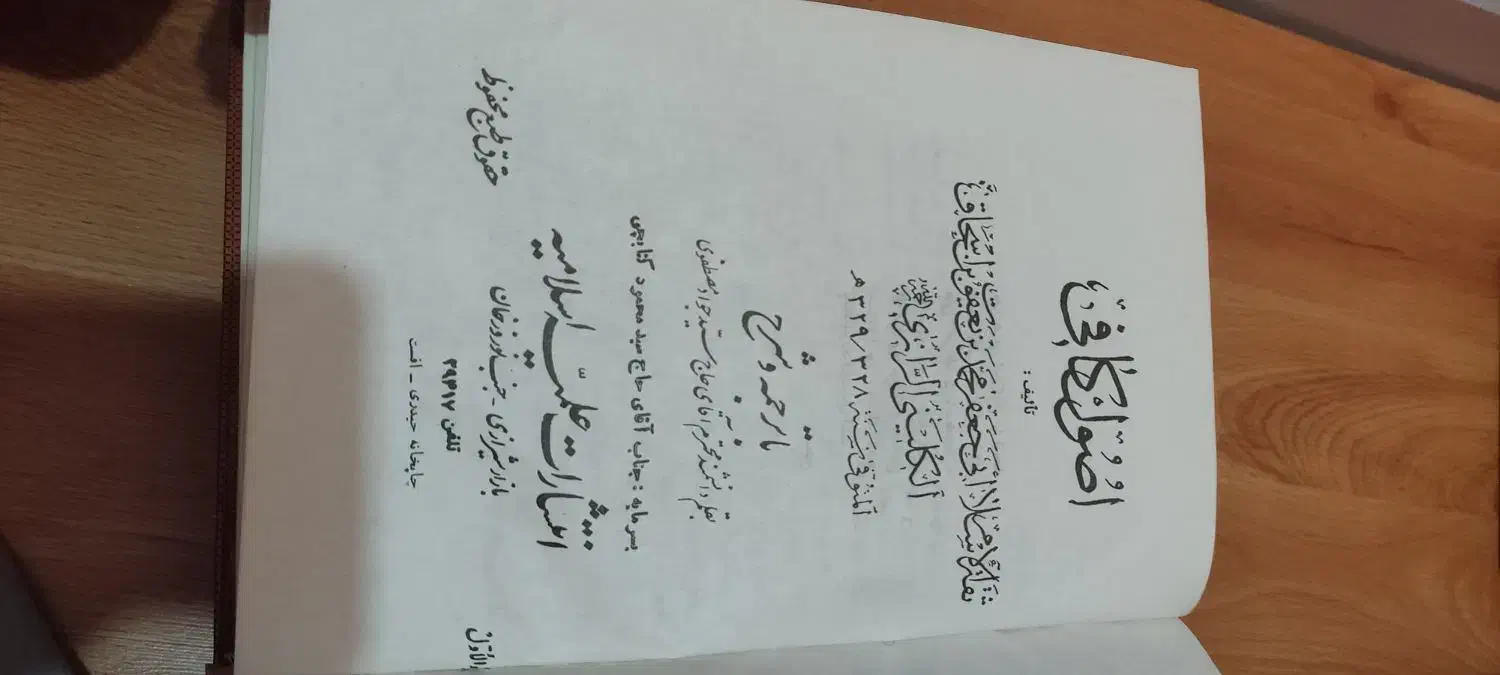 اُصُول کافی
تألیف:
ثقة الاسلام ابی جعفر محمد بن یعقوب بن اسحاق
الکلینی الرازی
المتوفی سنة ۳۲۸/۳۲۹ هـ
با ترجمه و شرح
بقلم دانشمند محترم آقای حاج سید جواد مصطفوی
بسرمایه : جناب آقای حاج سید محمود کتابچی
انتشارات علمیّه اسلامیه
بازار شیرازی - جنب نوروزخان
حقوق طبع محفوظ
تلفن
چاپخانه حیدری - افست